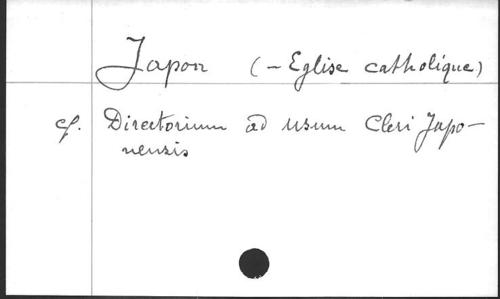 Japon (- Eglise catholique)
cf. Directorium ad usum Cleri Japo-
nensis